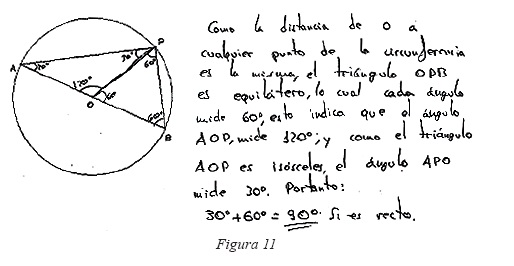 P
A
30°
30°
60°
120°
O
60
60°
B
Como la distancia de O a
cualquier punto de la circunferencia
es la misma, el triángulo OPB
es equilátero, lo cual cada ángulo
mide 60°, esto indica que el ángulo
AOP, mide 120°; y como el triángulo
AOP es isósceles, el ángulo APO
mide 30°. Portanto:
30°+60° = 90°. Si es recto.
Figura 11